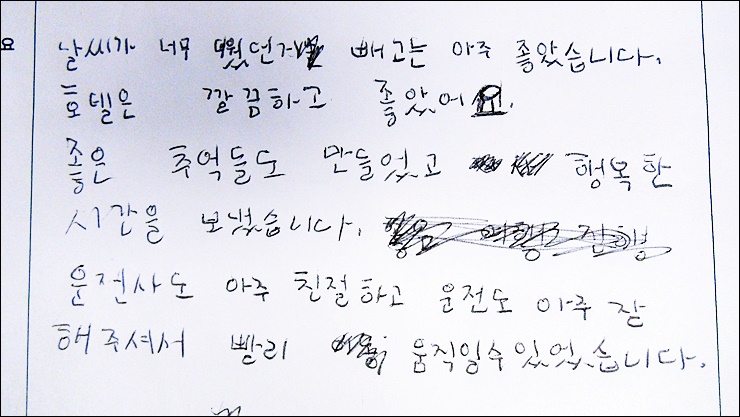 요
날씨가 너무 더웠던거 빼고는 아주 좋았습니다.
호텔은 깔끔하고 좋았어요.
좋은 추억들도 만들었고 행복한
시간을 보냈습니다.
운전사도 아주 친절하고 운전도 아주 잘
해주셔서 빨리 움직일수있었습니다.